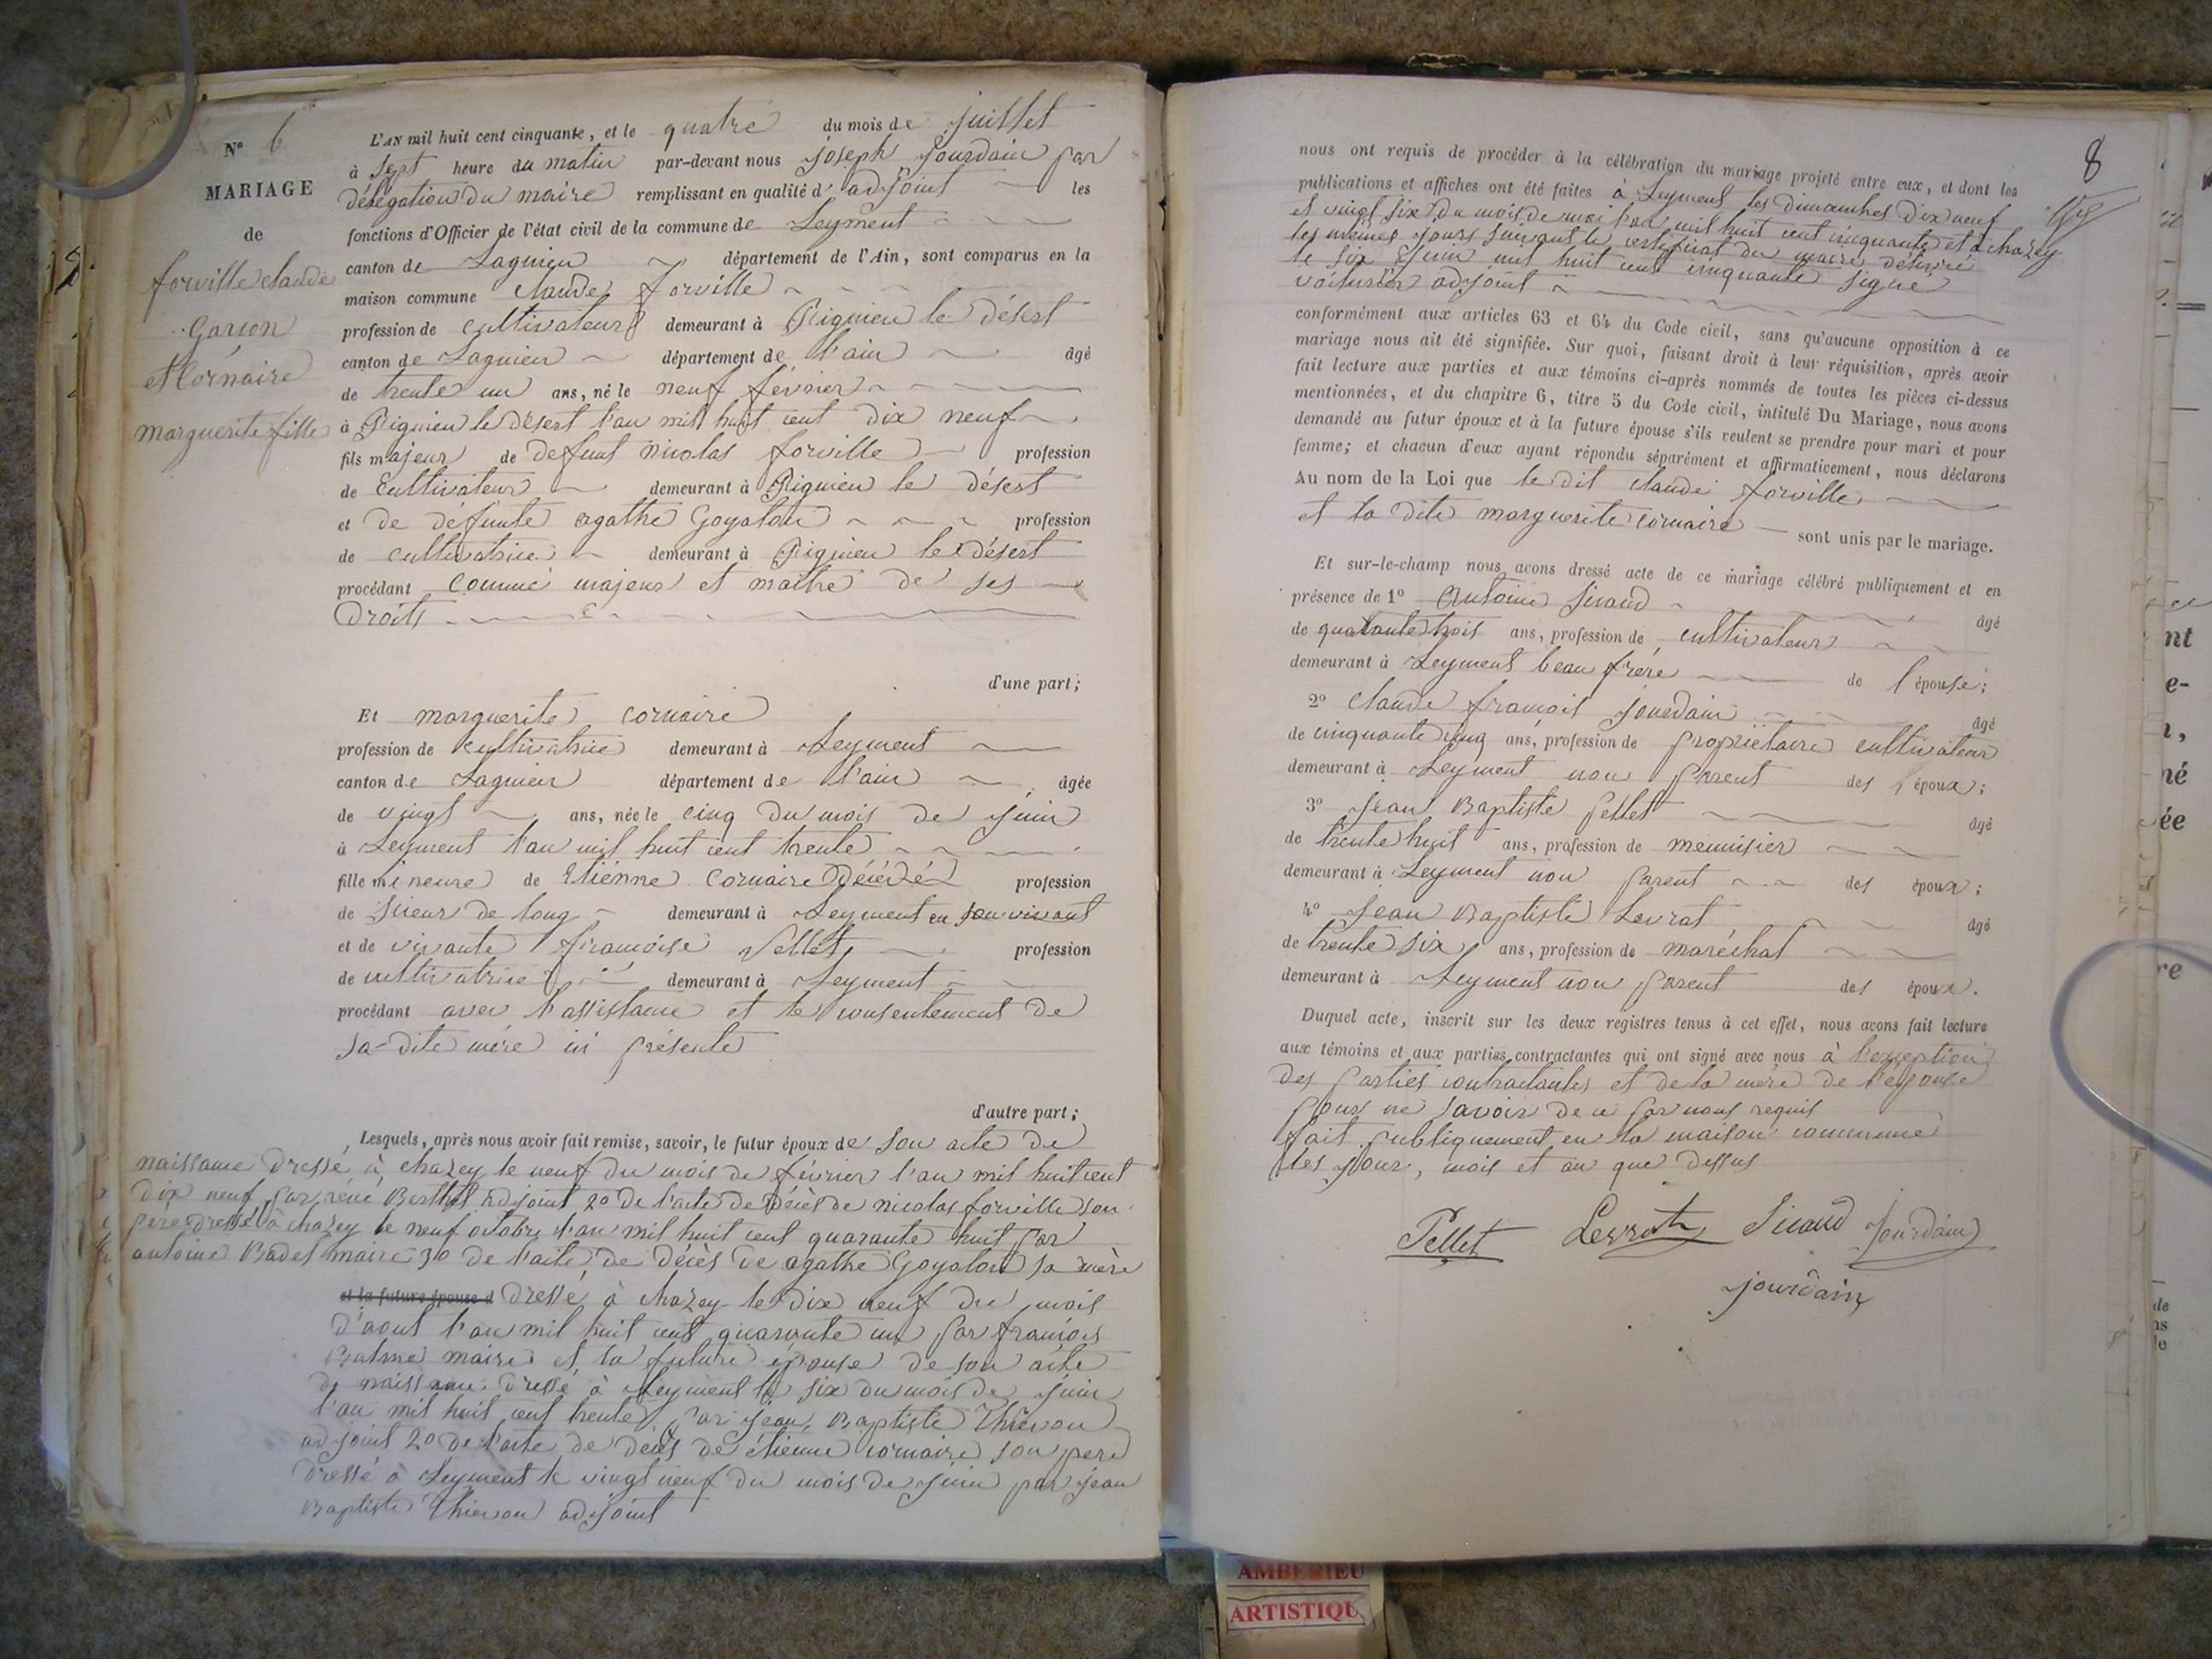 N° 6
MARIAGE
de
forville claude
Garson
et Cornaire
marguerite fille
L'AN mil huit cent cinquante, et le quatre du mois de juillet
à sept heure du matin par-devant nous joseph jourdain par
délégation du maire remplissant en qualité d'adjoint les
fonctions d'Officier de l'état civil de la commune de Leyment
canton de Lagnieu département de l'Ain, sont comparus en la
maison commune claude forville
profession de cultivateur demeurant à Rignieu le désert
canton de Lagnieu département de l'ain âgé
de trente un ans, né le neuf février
à Rignieu le désert l'an mil huit cent dix neuf
fils majeur de defunt nicolas forville profession
de Cultivateur demeurant à Rignieu le désert
et de défunte agathe Goyaton profession
de cultivatrice demeurant à Rignieu le désert
procédant comme majeur et maitre de ses
droits
d'une part;
Et marguerite cornaire
profession de cultivatrice demeurant à Leyment
canton de Lagnieu département de l'ain âgée
de vingt ans, née le cinq du mois de juin
à Leyment l'an mil huit cent trente
fille mineure de Etiénne Cornaire Décédé profession
de scieur de long demeurant à Leyment en son vivant
et de vivante françoise Pellet profession
de cultivatrice demeurant à Leyment
procédant avec l'assistance et le consentement de
sa dite mère ici présente
d'autre part;
Lesquels, après nous avoir fait remise, savoir, le futur époux de son acte de
naissance dressé à chazey le neuf du mois de février l'an mil huit cent
dix neuf par réné Berthet adjoint 2° de l'acte de décès de nicolas forville son
père dressé à chazey le neuf octobre l'an mil huit cent quarante huit par
antoine Badel maire 3° de l'acte de décès de agathe Goyaton sa mère
et la future épouse d dressé à chazey le dix neuf du mois
d'aout l'an mil huit cent quarante un par françois
maire et la future épouse de son acte
de naissance dressé à Leyment le six du mois de juin
l'an mil huit cent trente par jean Baptiste Thievon
adjoint 2° de l'acte de décès de étienne cornaire son pere
dressé à Leyment le vingt neuf du mois de juin par jean
Baptiste Thievon adjoint
8
nous ont requis de procéder à la célébration du mariage projeté entre eux, et dont les
publications et affiches ont été faites a Leyment les dimanches dix neuf
et vingt six du mois de mai l'an mil huit cent cinquante et à chazey
les mêmes jours suivant le certificat du maire délivré
le six juin mil huit cent cinquante signé
voiturier adjoint
conformément aux articles 63 et 64 du Code civil, sans qu'aucune opposition à ce
mariage nous ait été signifiée. Sur quoi, faisant droit à leur réquisition, après avoir
fait lecture aux parties et aux témoins ci-après nommés de toutes les pièces ci-dessus
mentionnées, et du chapitre 6, titre 5 du Code civil, intitulé Du Mariage, nous avons
demandé au futur époux et à la future épouse s'ils veulent se prendre pour mari et pour
femme; et chacun d'eux ayant répondu séparément et affirmativement, nous déclarons
Au nom de la Loi que le dit claude forville
et la dite marguerite cornaire sont unis par le mariage.
Et sur-le-champ nous avons dressé acte de ce mariage célébré publiquement et en
présence de 1° Antoine Sicaud âgé
de quatante trois ans, profession de cultivateur
demeurant à Leyment beau frère de l'épouse;
2° Claude françois jourdain âgé
de cinquante cinq ans, profession de propriétaire cultivateur
demeurant à Leyment non parent des époux;
3° Jean Baptiste Pellet âgé
de trente huit ans, profession de menuisier
demeurant à Leyment non parent des époux;
4° Jean Baptiste Levrat âgé
de trente six ans, profession de maréchal
demeurant à Leyment non parent des époux.
Duquel acte, inscrit sur les deux registres tenus à cet effet, nous avons fait lecture
aux témoins et aux parties contractantes qui ont signé avec nous à l'exception
des parties contractantes et de la mère de l'épouse
pour ne savoir de ce par nous requis
fait publiquement en la maison commune
les jour, mois et an que dessus
Pellet Levrat Sicaud Jourdain
jourdain
nt
e-
né
ée
re
AMBERIEU
ARTISTIQU